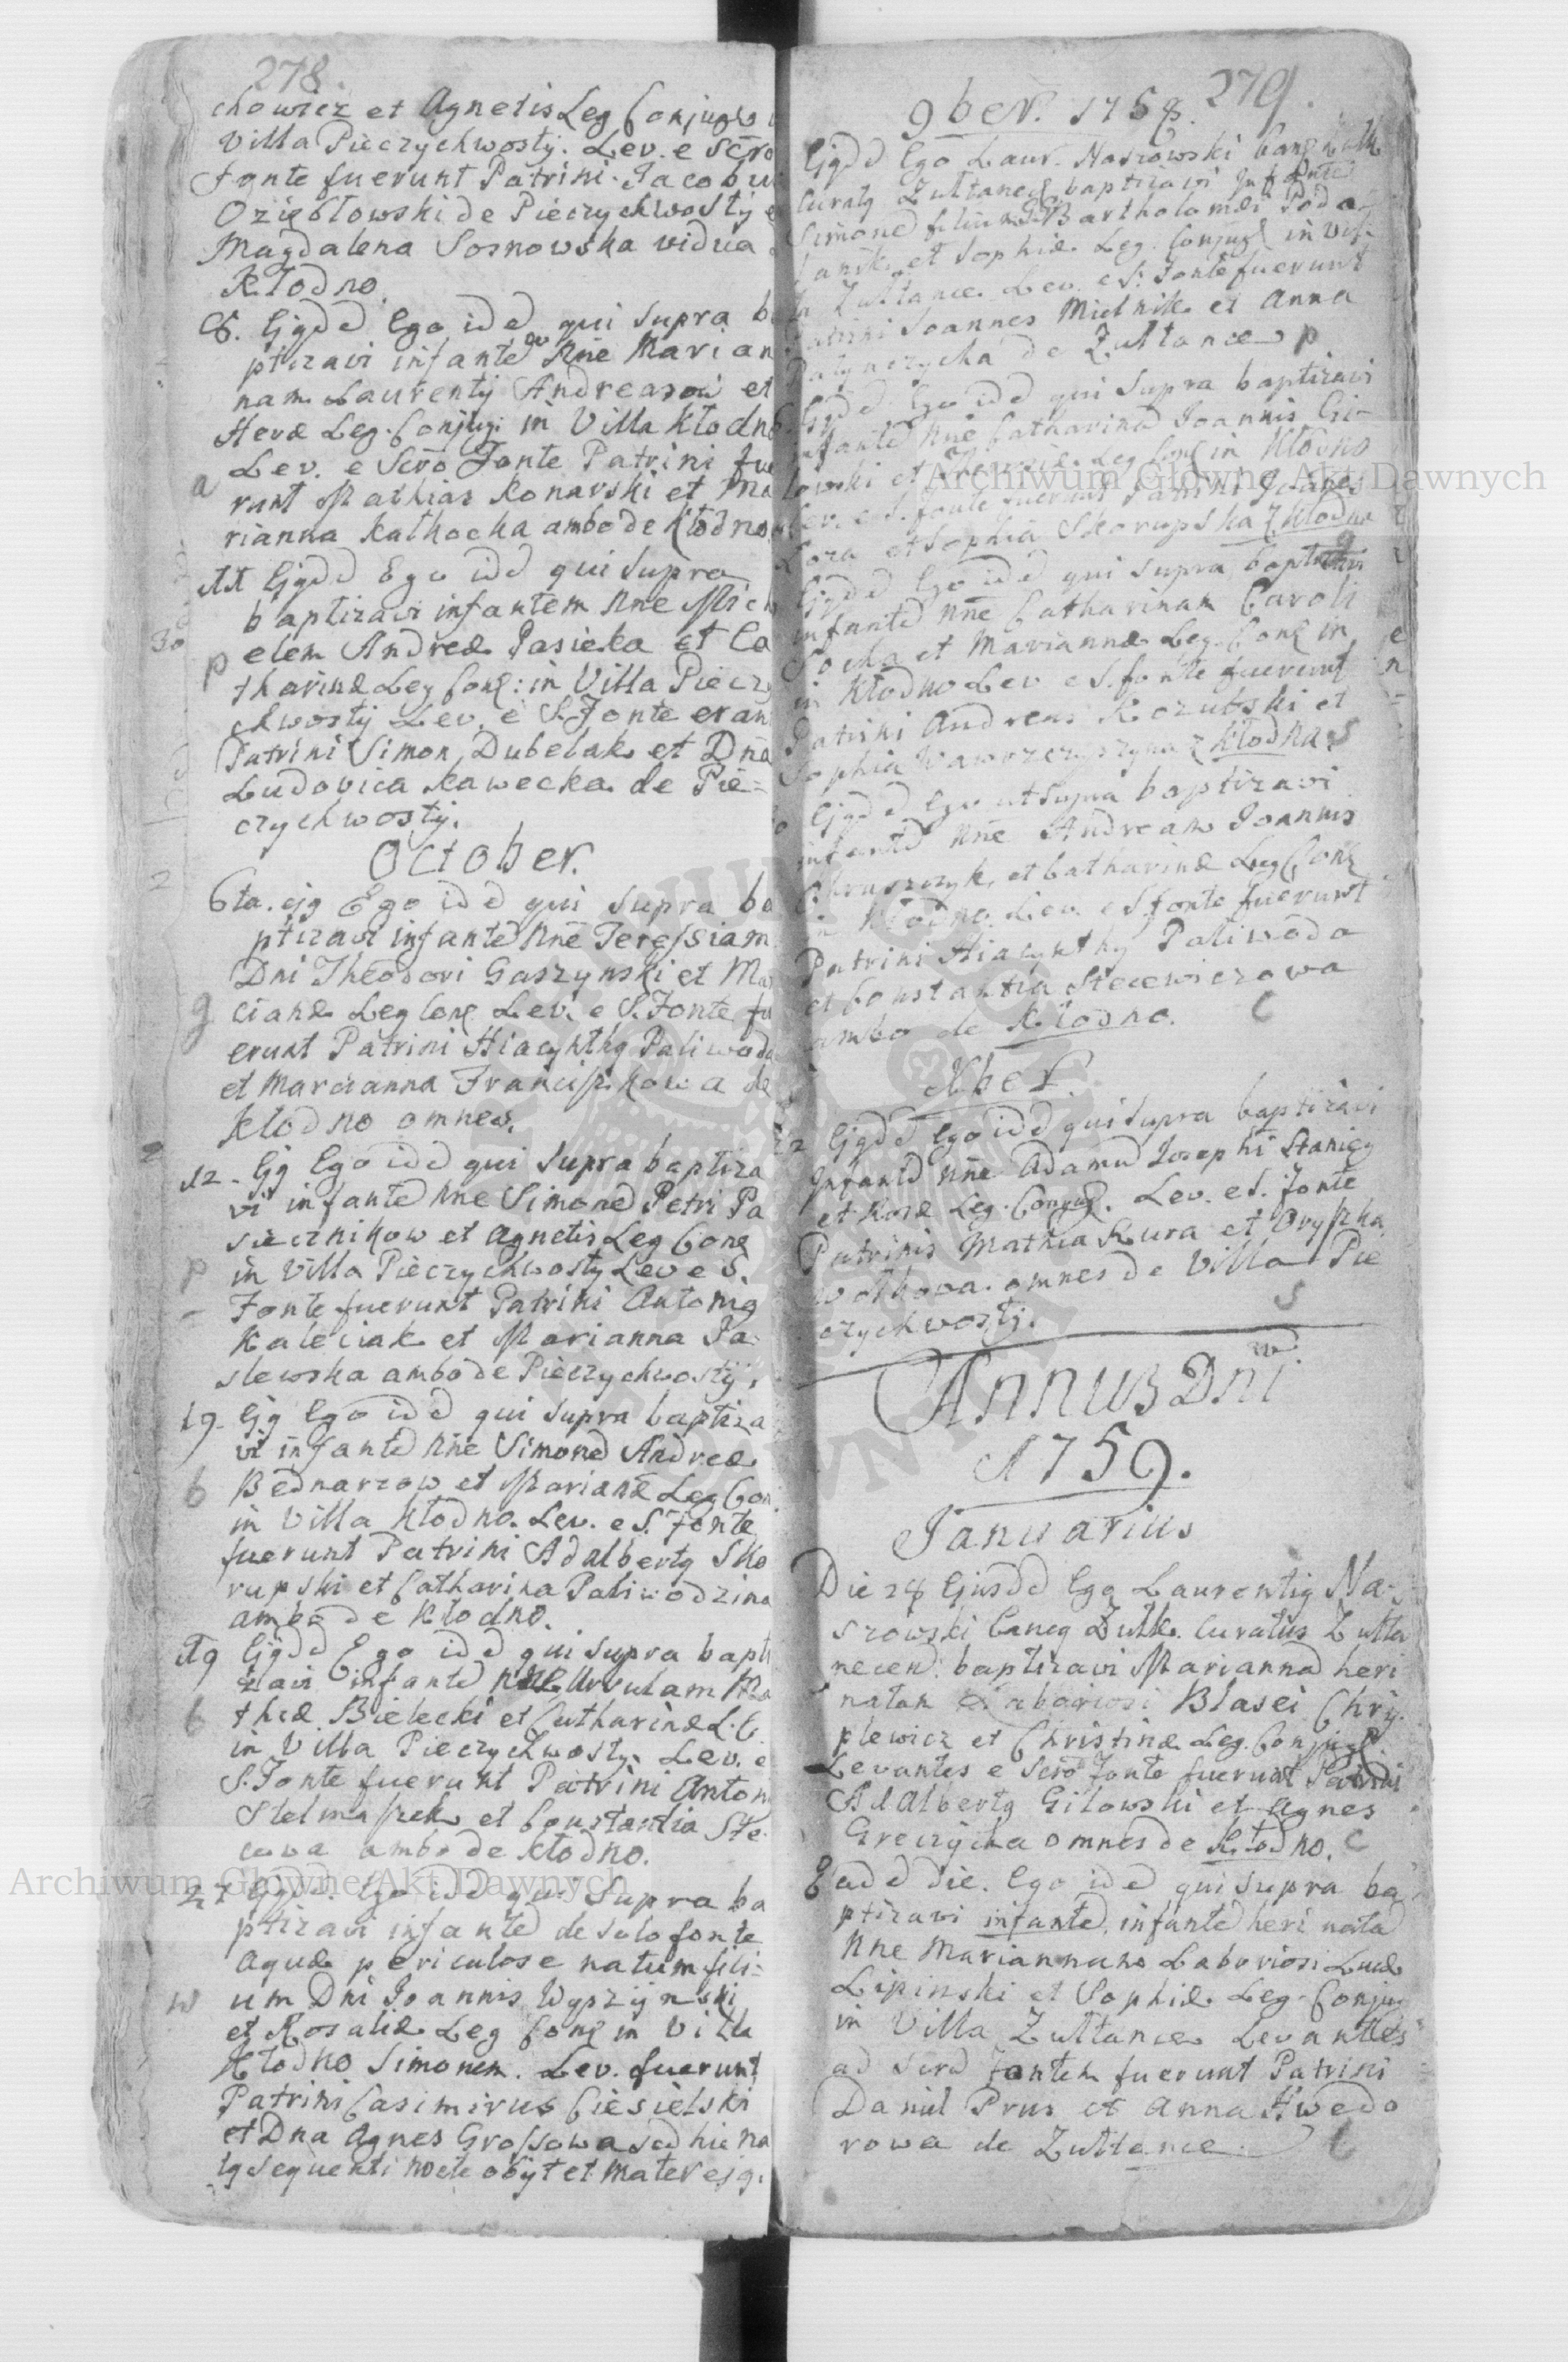 278.
chowicz et Agnetis Leg Conjugū
Villa Pieczychwosty. Lev. e Scro
Fonte fuerunt Patrini. Jacobu
Oziębłowski de Pieczychwosty e
Magdalena Sosnowska vidua
Kłodno.
8. Ejgdd Ego idd qui supra ba
ptizavi infantē Nne Marian
nam Laurentij Andreasow et
Hevæ Leg. Conjugi in Villa Kłodno
Lev. e Scro Fonte Patrini fue
a
runt Mathias Konarski et Ma
rianna Kathocka ambo de Kłodno
11 Ejgdd Ego idd qui supra
baptizavi infantem Nne Mich
30
elem Andreæ Pasieka et Ca
p
tharinæ Leg Conj: in Villa Pieczy
chwosty Lev. e S. Fonte eran
Patrini Simon Dubelak et Dna
Ludovica Kawecka de Pie=
czychwosty.
October.
6ta. ejg Ego idd qui supra ba
ptizavi infantē Nne Teressiam
Dni Theodori Gaszynski et Mar
g
cianæ Leg Conj Lev. e S. Fonte fu
erunt Patrini Hiacynthg Paliwoda
et Marcianna Franciszkowa de
Kłodno omnes.
12. Ejg Ego idd qui supra baptiza
vi infantē Nne Simonē Petri Pa
siecznikow et Agnetis Leg Conj
p
in Villa Pieczychwosty Lev e S.
Fonte fuerunt Patrini Antonig
Kaleciak et Marianna Ja-
slewska ambo de Pieczychwosty.
19. Ejg Ego idd qui supra baptiza
vi infantē Nne Simonē Andreæ
b
Bednarzow et Marianæ Leg Con
in Villa Kłodno. Lev. e S. Fonte
fuerunt Patrini Adalbertg Sko
rupski et Catharina Paliwodzina
ambo de Kłodno.
19 Ejgdd Ego idd qui supra bapti
zavi infantē Nne Ursulam Ma
b
thæ Bielecki et Catharinæ L. C.
in Villa Pieczychwosty. Lev. e
S. Fonte fuerunt Patrini Anton
Stelmaszek et Constantia Ste
cowa ambo de Kłodno.
27 Ejgdd. Ego idd qui supra ba
ptizavi infantē de solo fonte
aquæ periculose natum fili=
w
um Dni Joannis Wyszyński
et Rosaliæ Leg Conj in Villa
Kłodno Simonem. Lev. fuerunt
Patrini Casimirus Ciesielski
et Dna Agnes Grossowa sed hic na
tg sequenti nocte obijt et Mater ejg.
279.
9ber. 1758.
Ejgdd Ego Laur. Naszowski
Curatg Zułtanec baptizavi Infantē
Simonē filium Bartholomæi Poda
et Sophiæ Leg. Conjug in Vil-
Zułtance Lev. e S: Fonte fuerunt
Joannes Mielnik et Anna
de Zułtance p
Ejgdd Ego idd qui supra baptizavi
Infantē Nne Catharinā Joannis Gi-
łowski et Leg Conj in Kłodno
Lev. e S. fonte fuerunt Patrini Joañes
Koza et Sophia Skorupska z Kłodna
g
Ejgdd Ego idd qui supra baptizavi
infantē Nne Catharinam Caroli
Socha et Mariannæ Leg. Conj in
in Kłodno Lev e S. fonte fuerunt
Patrini Andreas Kozubski et
Sophia Wawrzczyszyna z Kłodna S
Ejgdd Ego ut supra baptizavi
infantē Nne Andream Joannis
et Catharinæ Leg Conj
in Kłodno. Lev. e S fonte fuerunt
Patrini Hiacynthg Paliwoda
et Constantia Stecewiczowa
ambo de Kłodno. C
Xber
22 Ejgdd Ego idd qui supra baptizavi
Infantē Nne Adamū Josephi Staniey
et Rosæ Leg. Conjug. Lev. e S. Fonte
Patrinis Mathia Kura et Oryszka
Wołkowa. omnes de Villa Pie
S
czychwosty.
Annus Dni
1759.
Januarius
Die 28 Ejusdd Ego Laurentig Na-
szowski Cancg Zułk. Curatus Zułta
necen: baptizavi Mariannā heri
natam Laboriosi Blasei Chry-
plewicz et Christinæ Leg. Conjug
Levantes e Scro Fonte fuerunt Patrini
Adalbertg Giłowski et Agnes
Greczycha omnes de Kłodno. C
Eadd die. Ego idd qui supra ba
ptizavi infantē, infantē heri natā
Nne Mariannam Laboriosi Lucæ
Lipinski et Sophiæ Leg. Conjug
in Villa Zułtance Levantes
ad Scrd Fontem fuerunt Patrini
Daniel Prus et Anna Hwedo
rowa de Zułtance. C
Archiwum Główne Akt Dawnych
Archiwum Główne Akt Dawnych